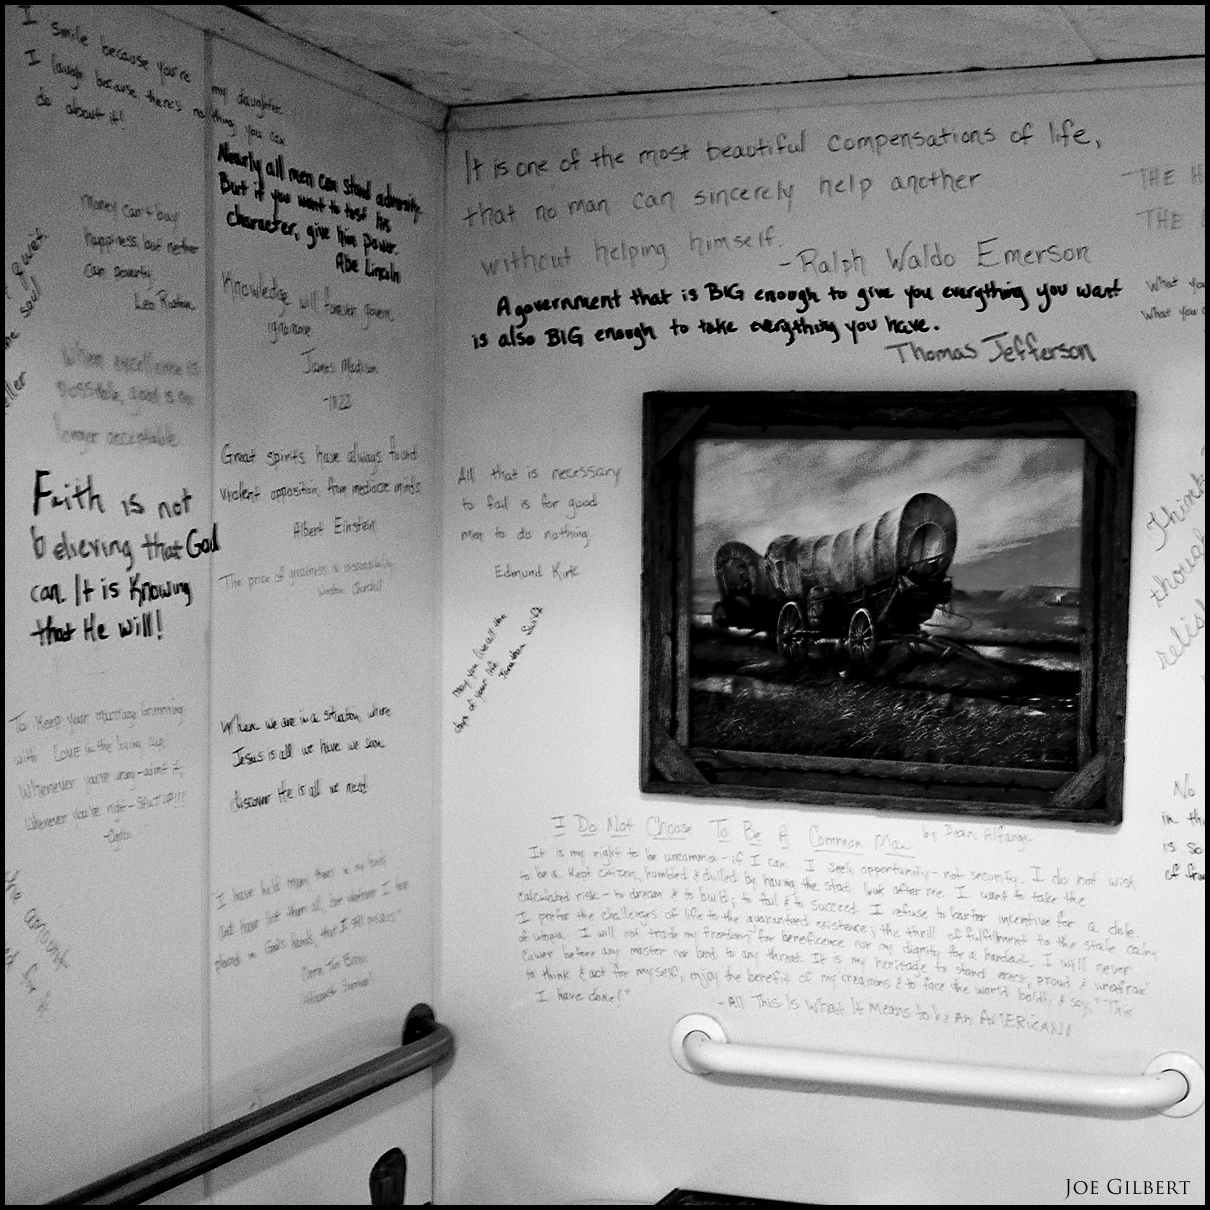 I smile because you're my daughter.
I laugh because there's nothing you can
do about it!
Nearly all men can stand adversity,
But if you want to test his
character, give him power.
Abe Lincoln
Money can't buy
happiness, but neither
can poverty.
Leo Rosten
Knowledge will forever govern
ignorance
James Madison
-1822
When excellence is
possible, good is no
longer acceptable
Great spirits have always found
violent opposition from mediocre minds
Albert Einstein
Faith is not
believing that God
can. It is Knowing
that He will!
The price of greatness is responsibility
Winston Churchill
To Keep your marriage brimming
with LOVE in the loving cup,
Whenever you're wrong-admit it,
Whenever you're right-SHUT UP!!!
When we are in a situation where
Jesus is all we have we soon
discover He is all we need
I have held many things in my hands
and have lost them all, but whatever I have
placed in God's hands, that I still possess."
It is one of the most beautiful compensations of life,
that no man can sincerely help another
without helping himself.
-Ralph Waldo Emerson
A government that is BIG enough to give you everything you want
is also BIG enough to take everything you have.
Thomas Jefferson
All that is necessary
to fail is for good
men to do nothing.
Edmund
May you live all the
days of your life
Jonathan Swift
I Do Not Choose To Be A Common Man by Dean Alfange
It is my right to be uncommon-if I can. I seek opportunity-not security. I do not wish
to be a kept citizen, humbled & dulled by having the state look after me. I want to take the
calculated risk-to dream & to build, to fail & to succeed. I refuse to barter incentive for a dole.
I prefer the challenges of life to the guaranteed existence; the thrill of fulfillment to the stale calm
of utopia. I will not trade my freedom for beneficence nor my dignity for a handout. I will never
cower before any master nor bend to any threat. It is my heritage to stand erect, proud & unafraid
to think & act for myself, enjoy the benefit of my creations & to face the world boldly & say, "This
I have done!"
-All This Is What It Means to be An AMERICAN!!
THE H
THE
What yo
What you
Think
thou
relis
No
in th
is so
of
JOE GILBERT